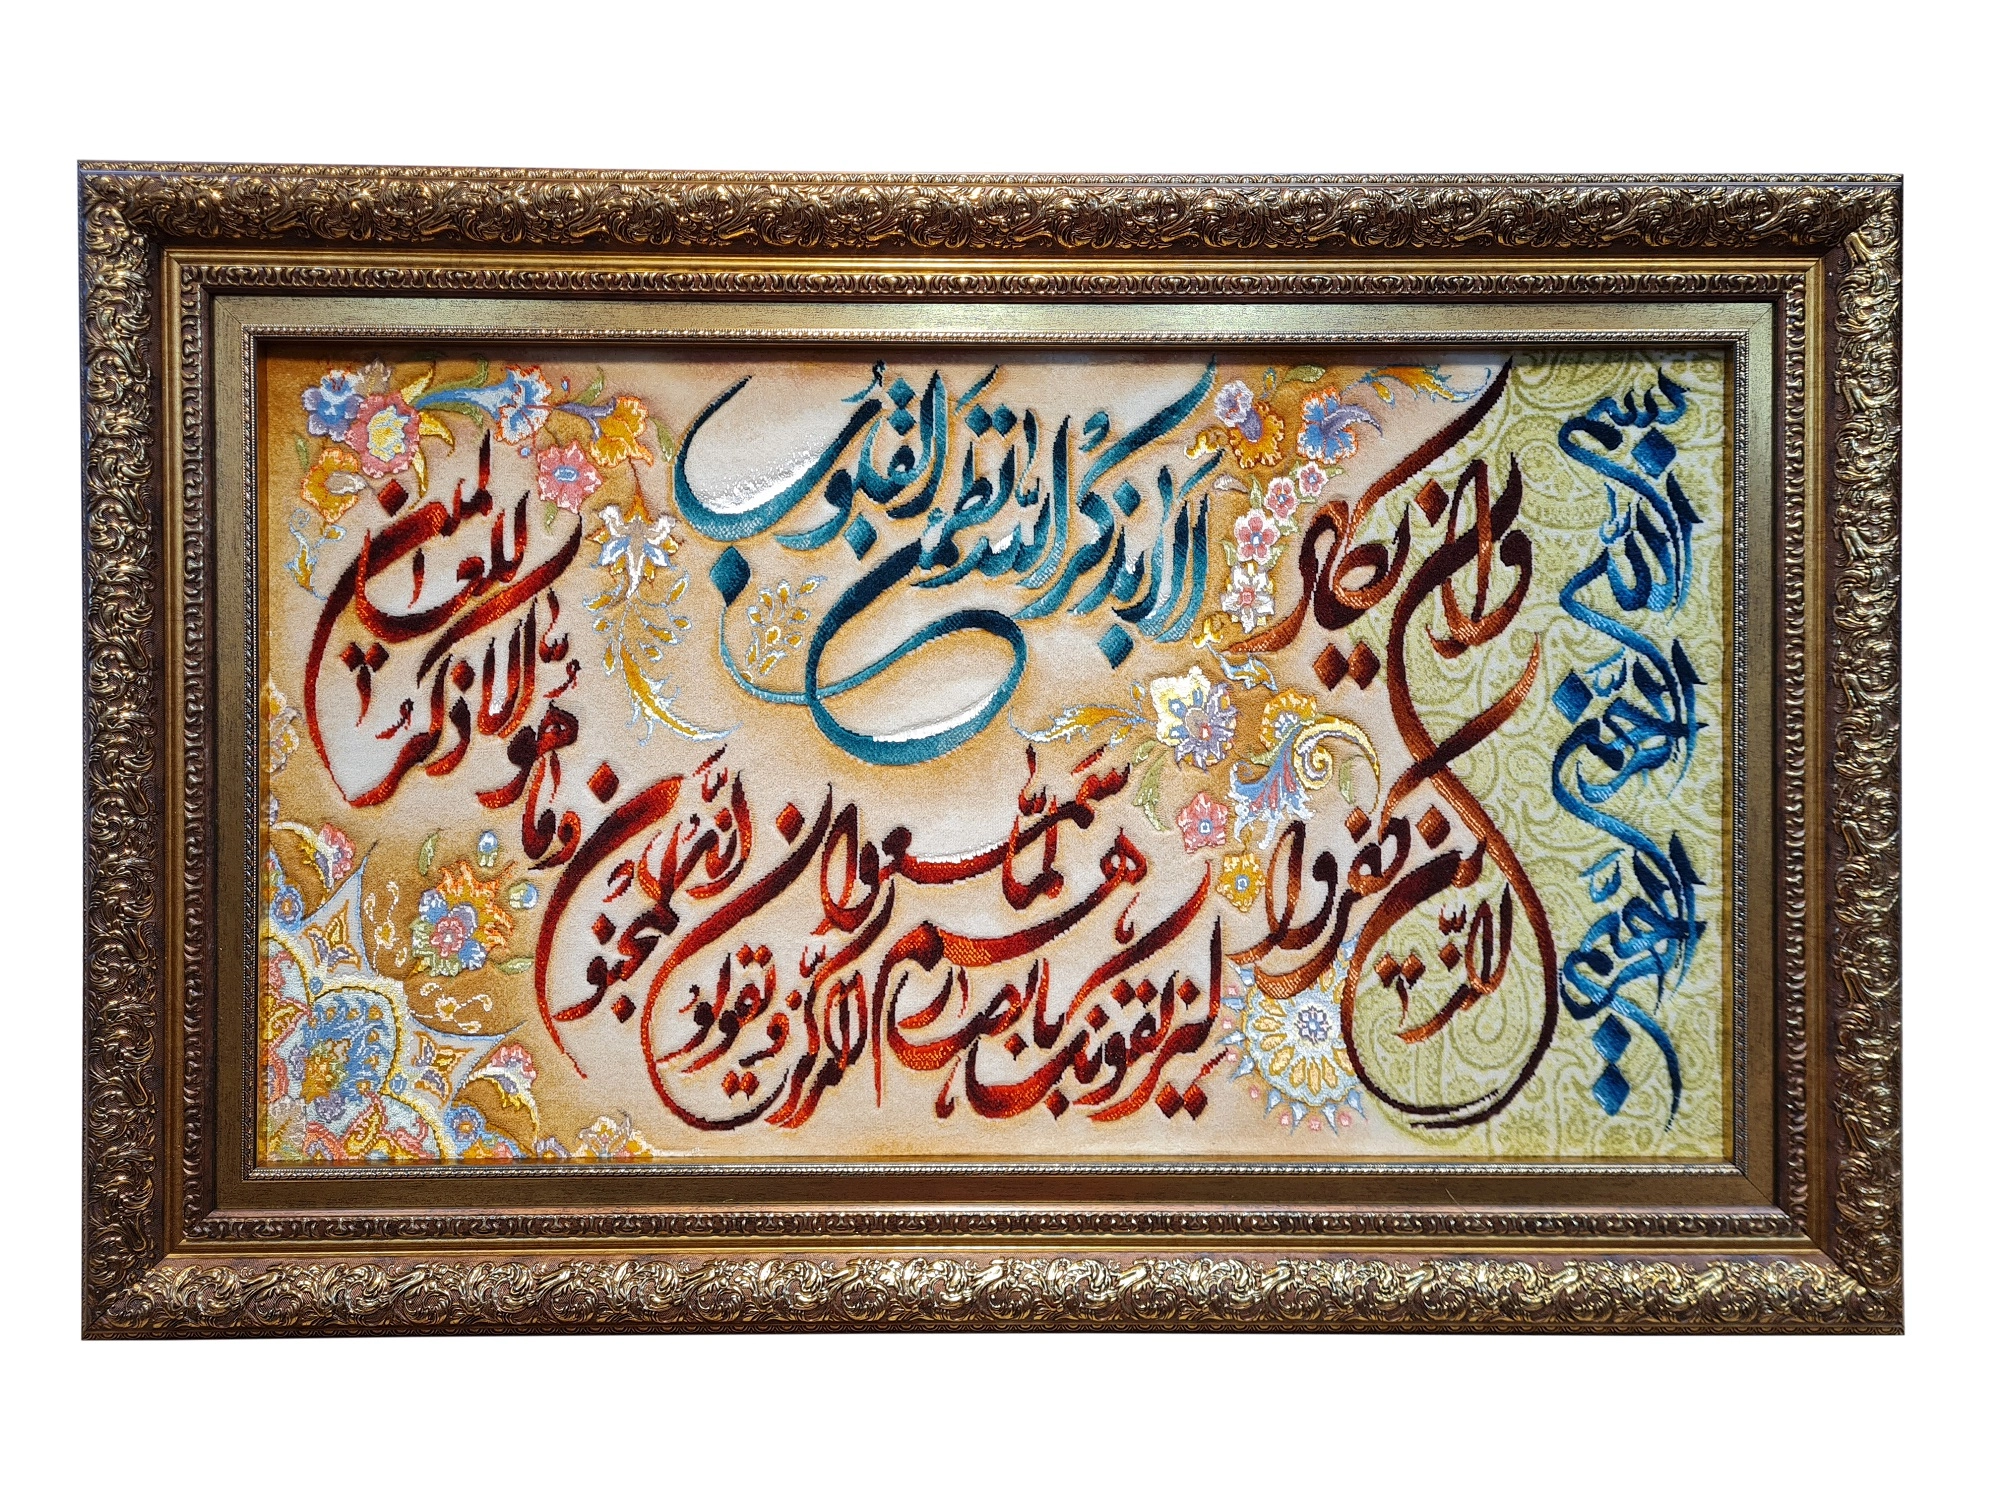 بسم الله الرحمن الرحیم
وان یکاد
الذین کفروا
لیزلقونک بابصارهم لما سمعوا
الذکر و یقولون انه لمجنون
وما هو الا ذکر
للعالمین
الا بذکر الله تطمئن القلوب